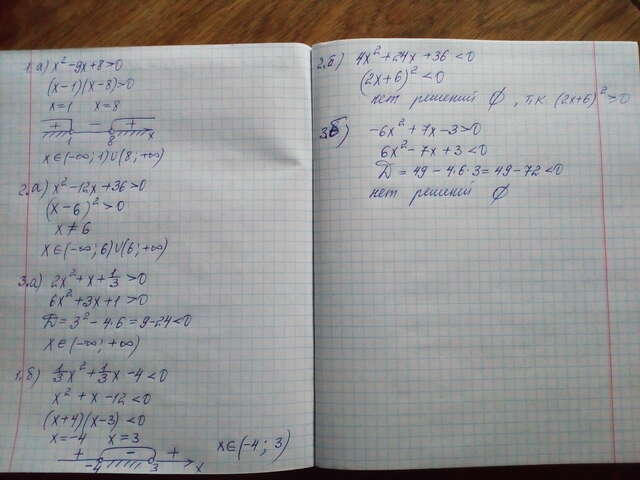 1.а) x² -9x+8>0
(x-1)(x-8)>0
x=1 x=8
+ - +
1 8 x
x∈(-∞; 1)∪(8; +∞)
2.а) x²-12x+36>0
(x-6)²>0
x≠6
x∈(-∞; 6)∪(6; +∞)
3.а) 2x²+x+1/3>0
6x²+3x+1>0
D=3²-4·6=9-24<0
x∈(-∞; +∞)
1.б) 1/3x²+1/3x-4<0
x²+x-12<0
(x+4)(x-3)<0
x=-4 x=3
+ - +
-4 3 x
x∈(-4; 3)
2.б) 4x²+24x+36<0
(2x+6)²<0
нет решений ∅, т.к. (2x+6)²>0
3б) -6x²+7x-3>0
6x²-7x+3<0
D=49-4·6·3=49-72<0
нет решений ∅